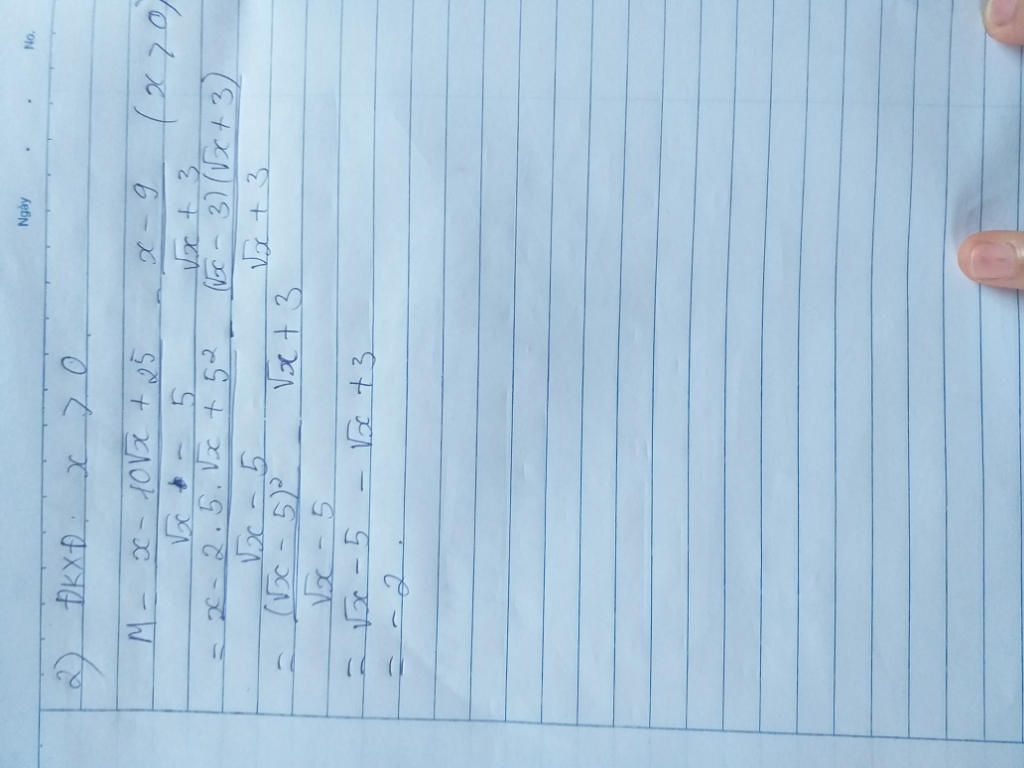 Ngày No.
2) ĐKXĐ: x > 0
M = (x - 10√x + 25)/(√x - 5) - (x - 9)/(√x + 3) (x > 0)
= (x - 2.5.√x + 5²)/(√x - 5) - ((√x - 3)(√x + 3))/(√x + 3)
= (√x - 5)²/(√x - 5) - √x + 3
= √x - 5 - √x + 3
= - 2.